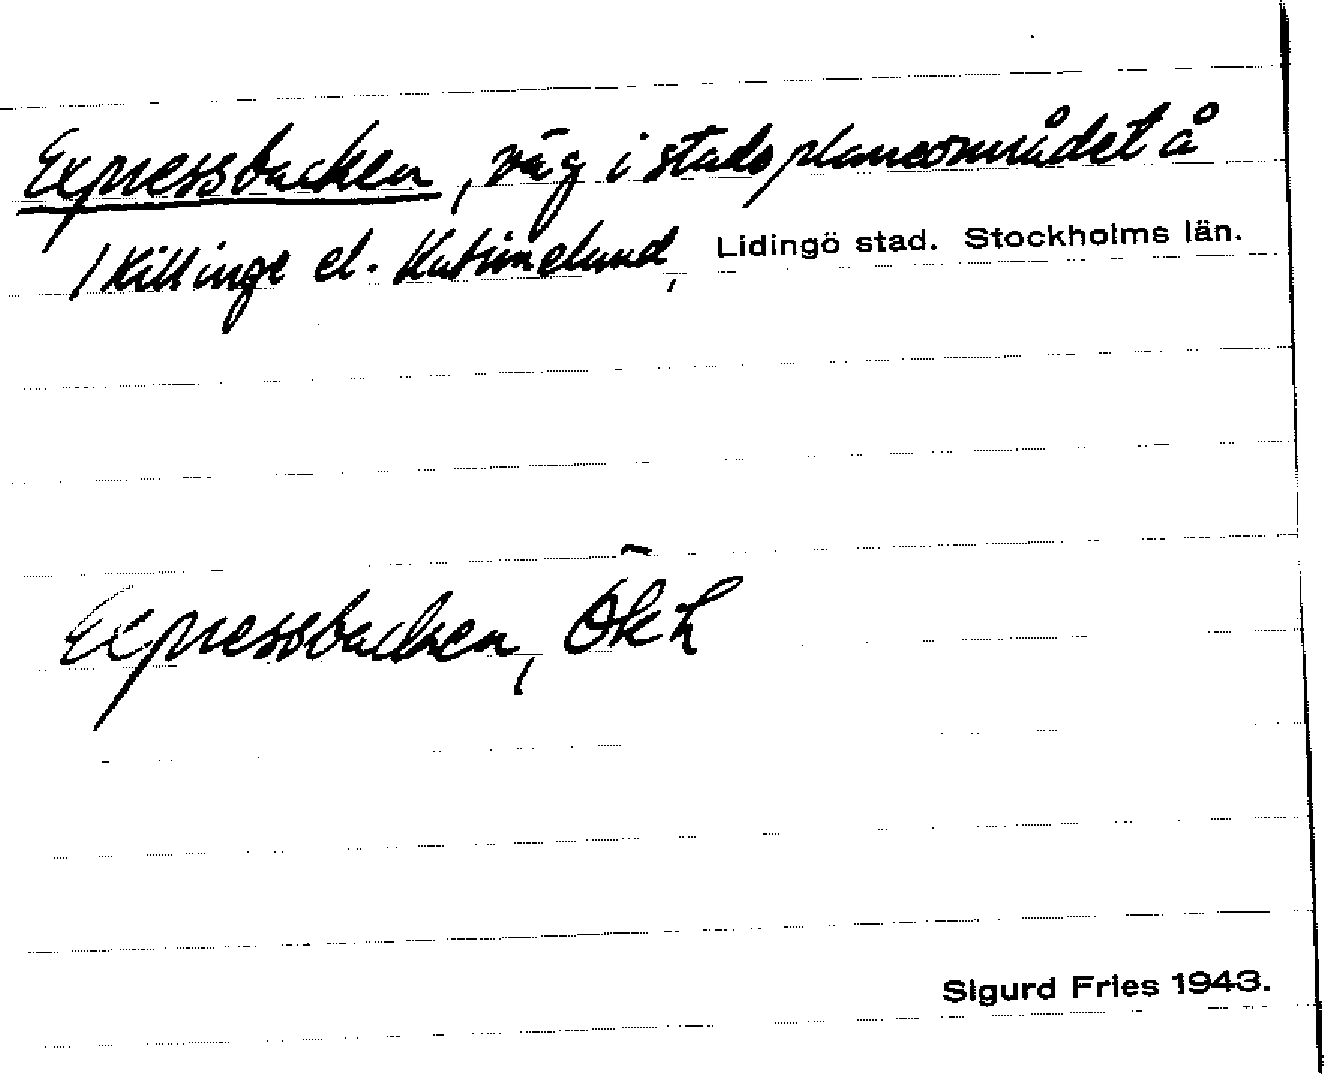 Expressbacken, väg i stadsplaneområdet å
/Killinge el. Katrinelund, Lidingö stad. Stockholms län.
Expressbacken, ÖkL
Sigurd Fries 1943.